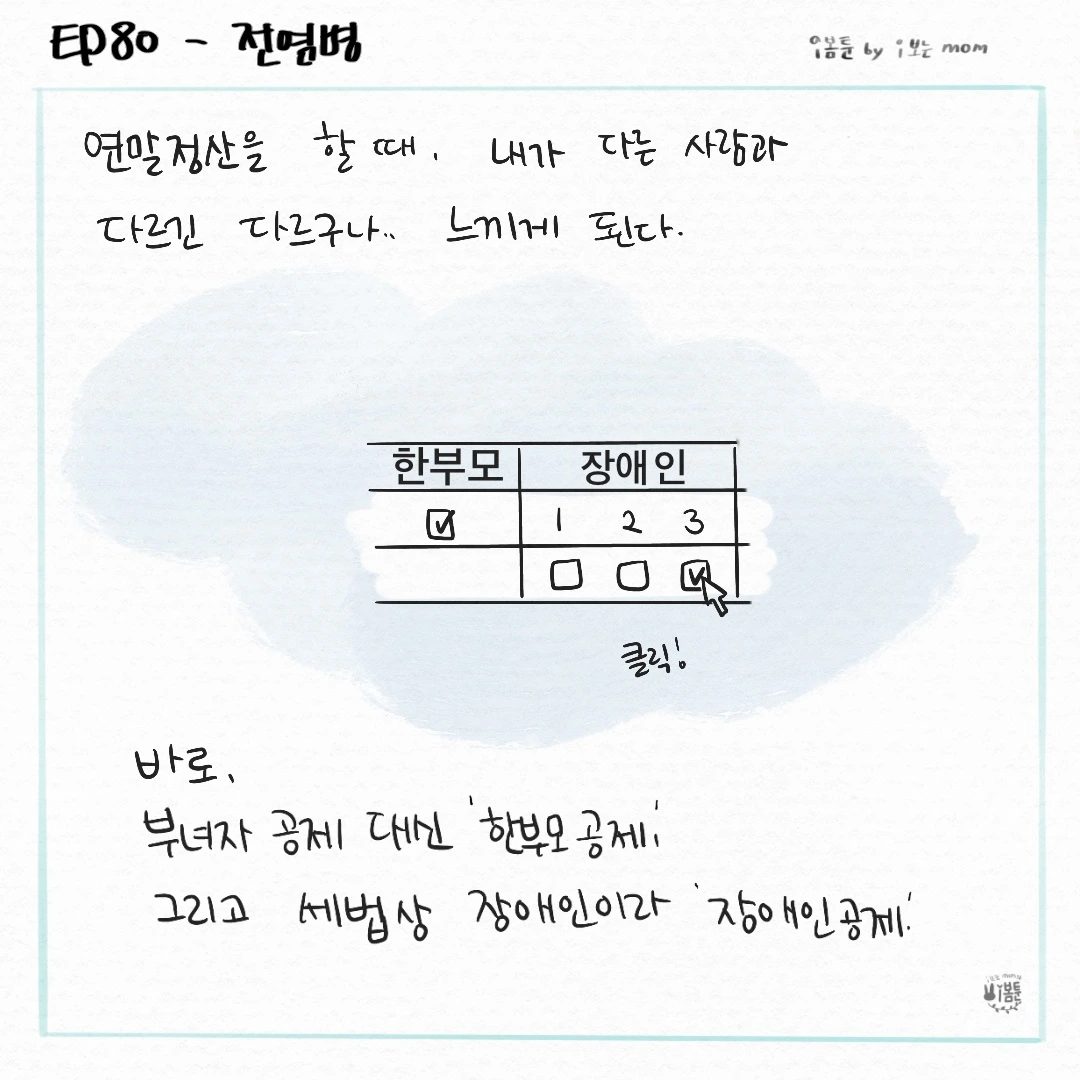 EP80 - 전염병
이봄툰 by i 보는 mom
연말정산을 할 때, 내가 다른 사람과
다르긴 다르구나.. 느끼게 된다.
한부모 장애인
1 2 3
클릭!
바로,
부녀자 공제 대신 '한부모 공제'
그리고 세법상 장애인이라 '장애인 공제.'
이봄툰